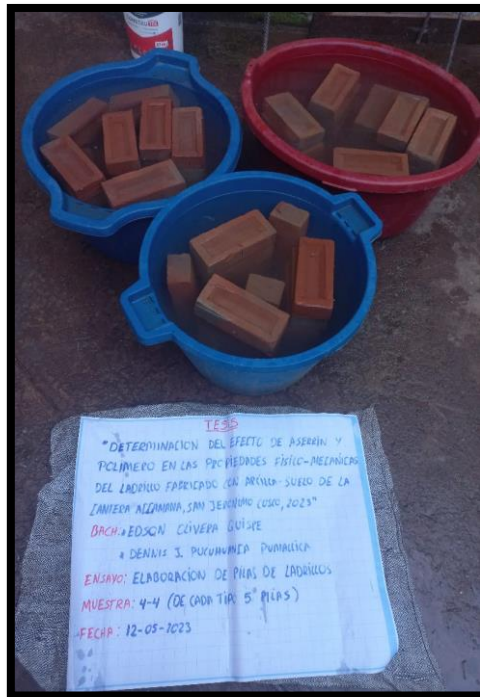 TESIS
"DETERMINACION DEL EFECTO DE ASERRÍN Y
POLIMERO EN LAS PROPIEDADES FISICO-MECANICAS
DEL LADRILLO FABRICADO CON ARCILLA-SUELO DE LA
CANTERA SAN JERONIMO CUSCO, 2023"
BACH: EDSON OLIVERA QUISPE
DENNIS J. PUCUHUANCA PUMALLICA
ENSAYO: ELABORACION DE PILAS DE LADRILLOS
MUESTRA: 4-4 (DE CADA TIPO 5 PILAS)
FECHA: 12-05-2023